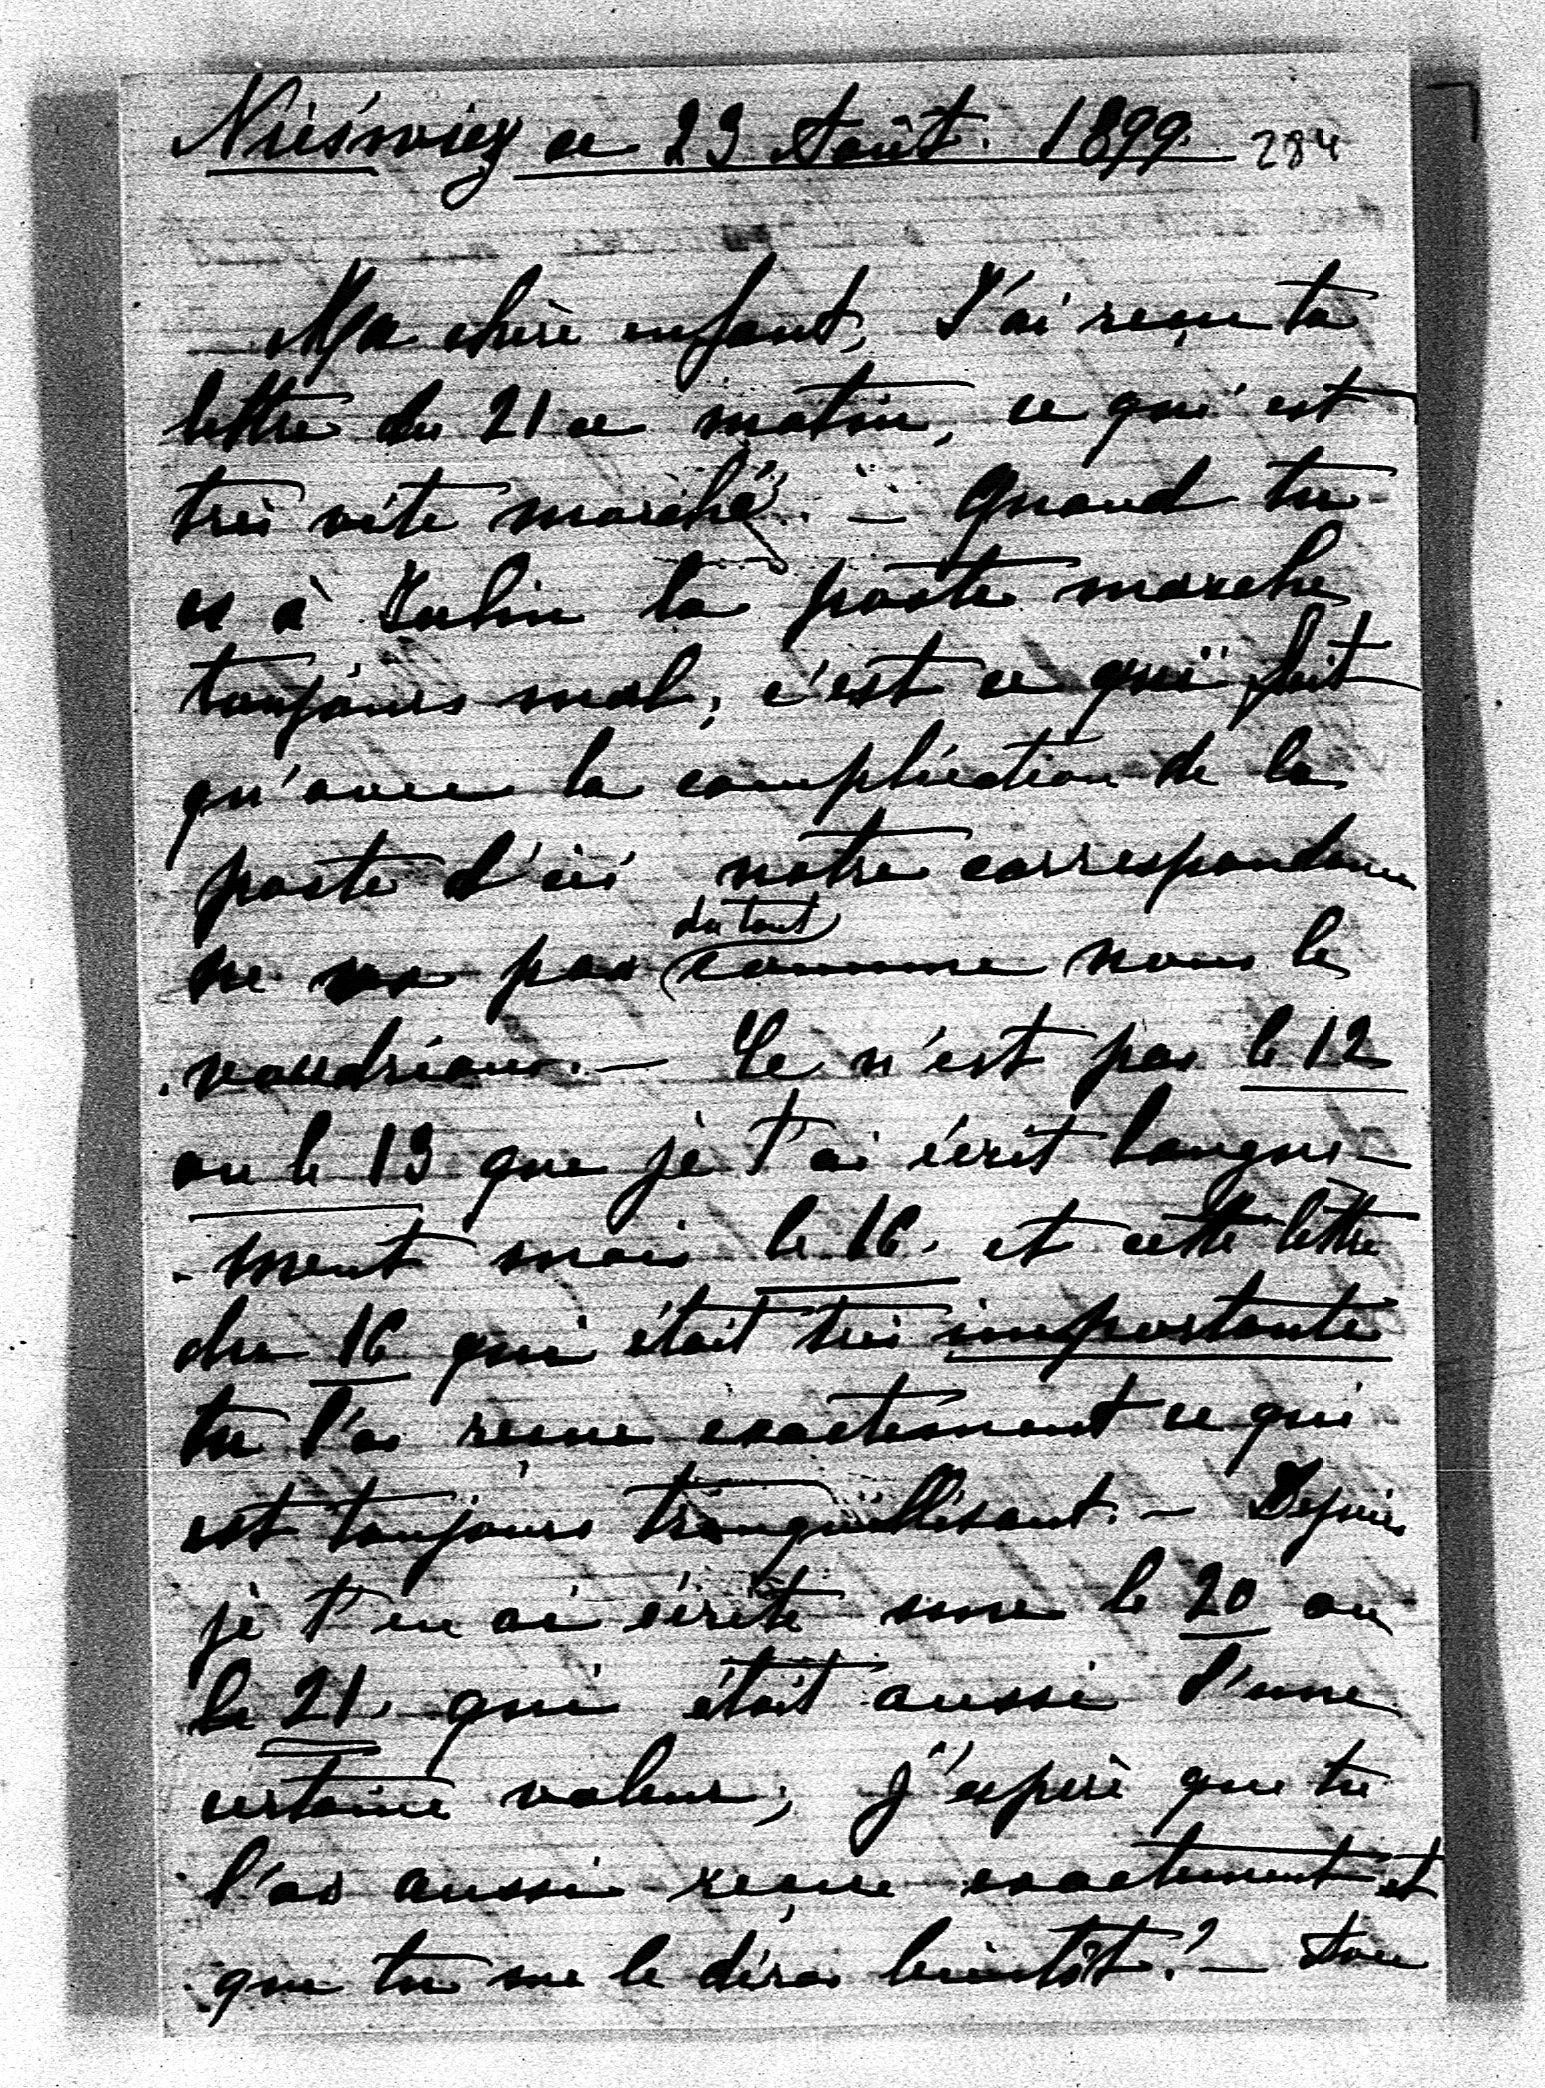 Nieśwież ce 23 Août. 1899. 284
Ma chère enfant, J'ai reçu ta
lettre du 21 ce matin, ce qui est
très vite marché. — Quand tu
es à Berlin la poste marche
toujours mal, c'est ce qui fait
qu'avec la complication de la
poste d'ici notre correspondance
du tout
ne va pas comme nous le
voudrions. — Ce n'est pas le 12
ou le 13 que je t'ai écrit longue-
-ment mais le 16. et cette lettre
du 16 qui était très importante
tu l'as reçue exactement ce qui
est toujours tranquillisant. — Depuis
je t'en ai écrite une le 20 ou
le 21. qui était aussi d'une
certaine valeur, j'espère que tu
l'as aussi reçue exactement et
que tu me le diras bientôt? —